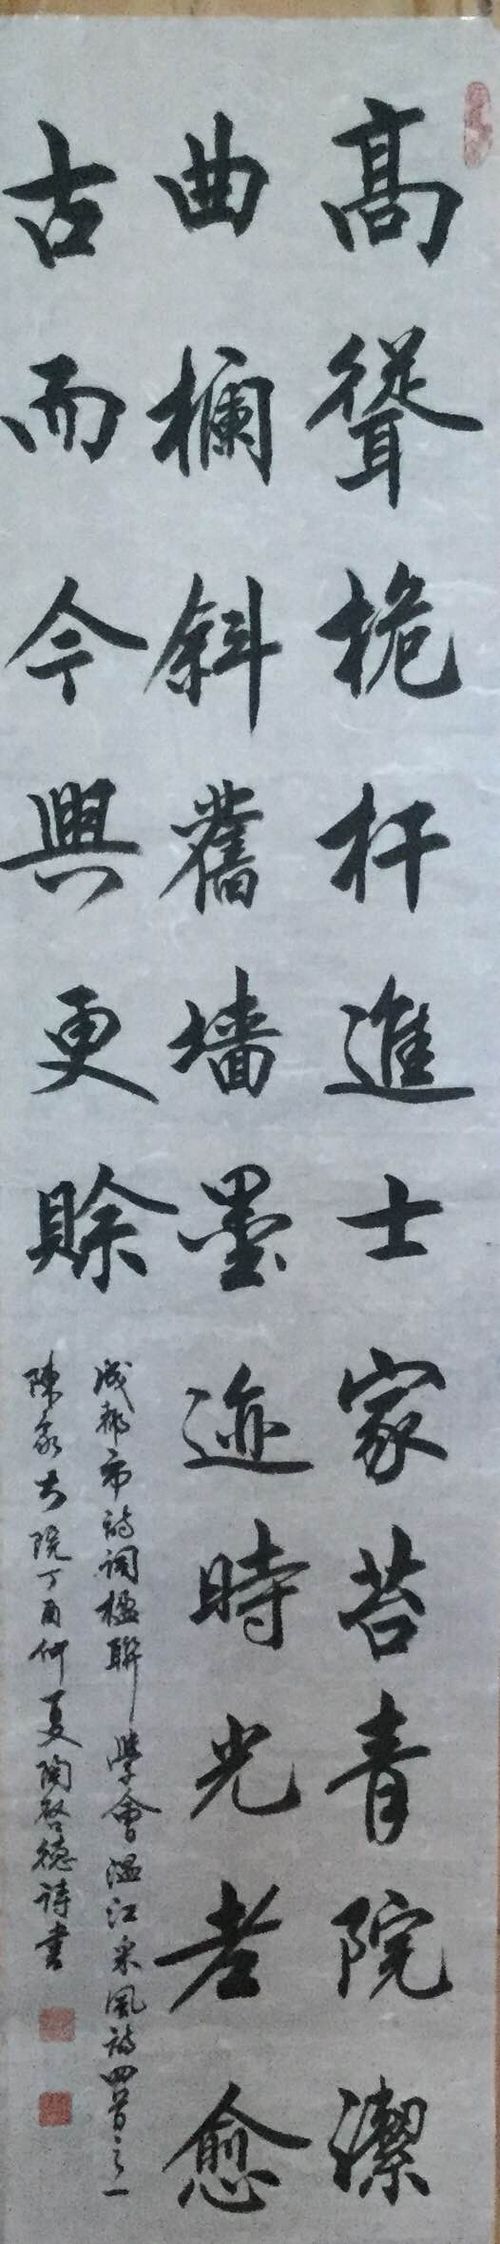 高聳桅杆進士家苔青院潔
曲欄斜舊墙墨迹時光老愈
古而今興更賒
成都市詩詞楹聯學會溫江采風詩四首之一
陳家大院丁酉仲夏陶啓德詩書